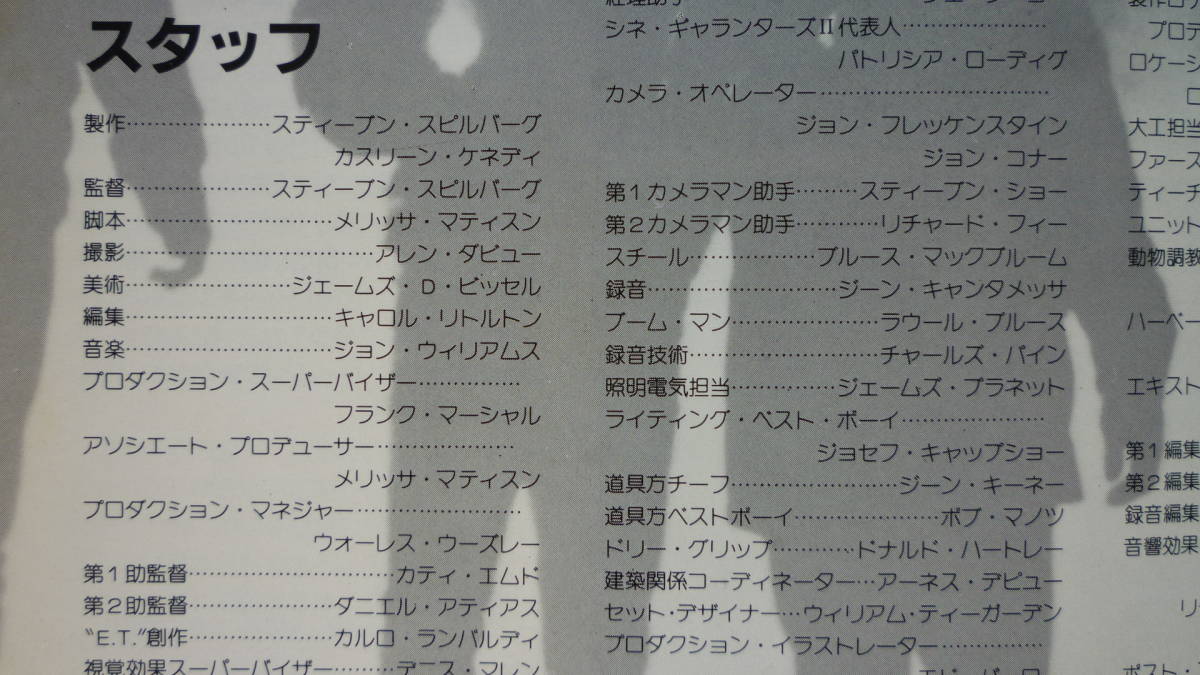 スタッフ
製作…………………スティーブン・スピルバーグ
カスリーン・ケネディ
監督…………………スティーブン・スピルバーグ
脚本…………………………メリッサ・マティスン
撮影………………………………アレン・ダビュー
美術……………………ジェームズ・D・ビッセル
編集…………………………キャロル・リトルトン
音楽…………………………ジョン・ウィリアムス
プロダクション・スーパーバイザー……………
フランク・マーシャル
アソシエート・プロデューサー…………………
メリッサ・マティスン
プロダクション・マネジャー……………………
ウォーレス・ウーズレー
第1助監督…………………………カティ・エムド
第2助監督…………………ダニエル・アティアス
〝E.T.〟創作…………………カルロ・ランバルディ
視覚効果スーパーバイザー………デニス・マレン
シネ・ギャランターズⅡ代表人…………………
パトリシア・ローディグ
カメラ・オペレーター……………………………
ジョン・フレッケンスタイン
ジョン・コナー
第1カメラマン助手………スティーブン・ショー
第2カメラマン助手…………リチャード・フィー
スチール………………ブルース・マックブルーム
録音………………………ジーン・キャンタメッサ
ブーム・マン…………………ラウール・ブルース
録音技術………………………チャールズ・パイン
照明電気担当……………ジェームズ・プラネット
ライティング・ベスト・ボーイ…………………
ジョセフ・キャップショー
道具方チーフ……………………ジーン・キーネー
道具方ベストボーイ…………………ボブ・マノツ
ドリー・グリップ…………ドナルド・ハートレー
建築関係コーディネーター…アーネス・デピュー
セット・デザイナー…ウィリアム・ティーガーデン
プロダクション・イラストレーター……………
プロデ
ロケーシ
大工担当
ファース
ティーチ
ユニット
動物調教
ハーベー
エキスト
第1編集
第2編集
録音編集
音響効果
リ
ポスト・